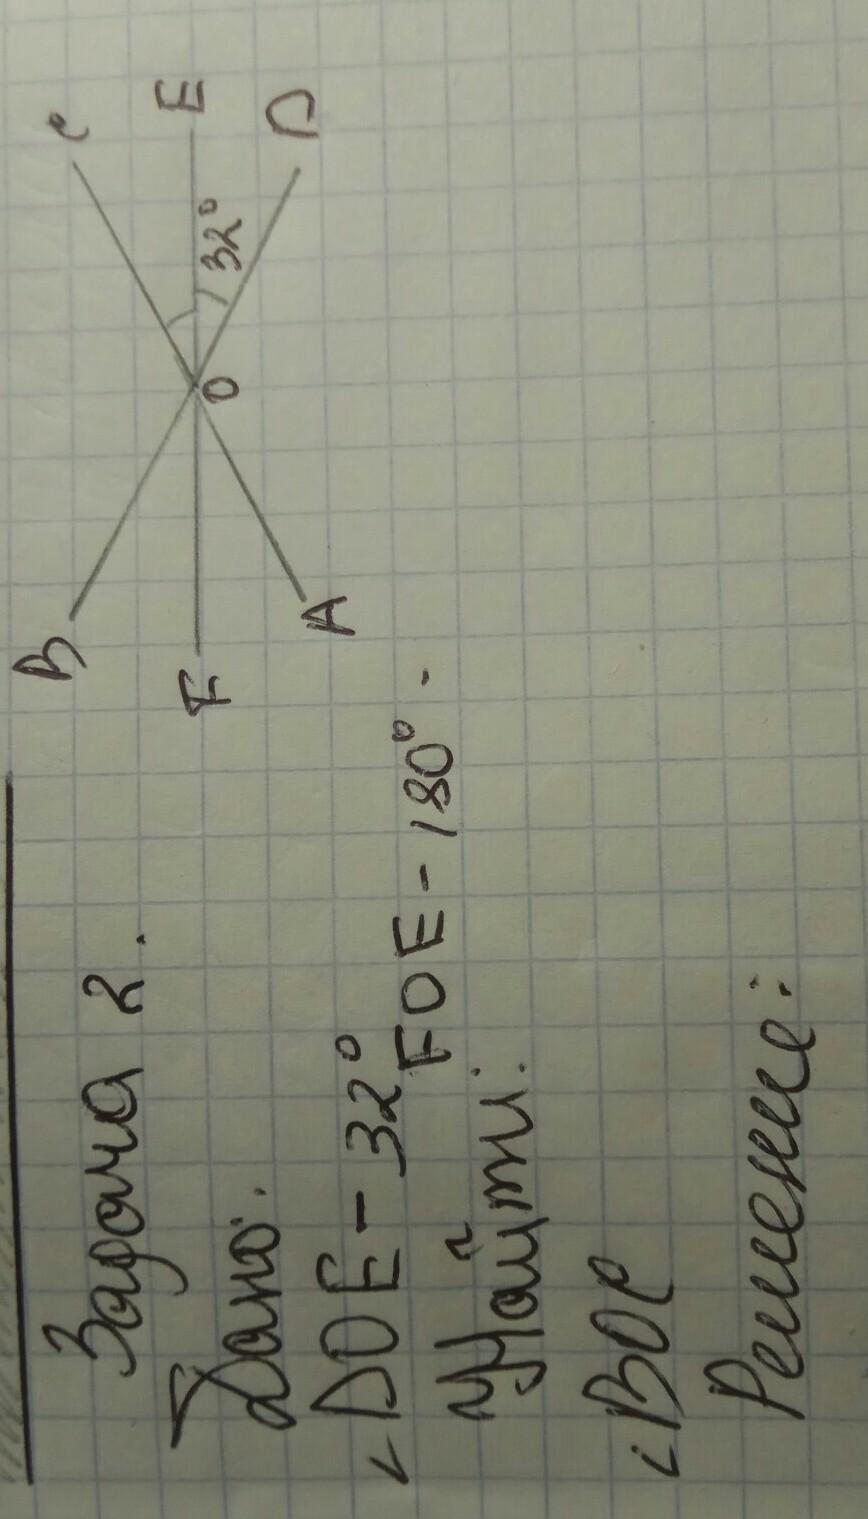 Задача 2.
Дано:
∠DOE - 32°
FOE - 180°.
Найти:
∠BOC
Решение:
B
C
F
E
32°
O
A
D